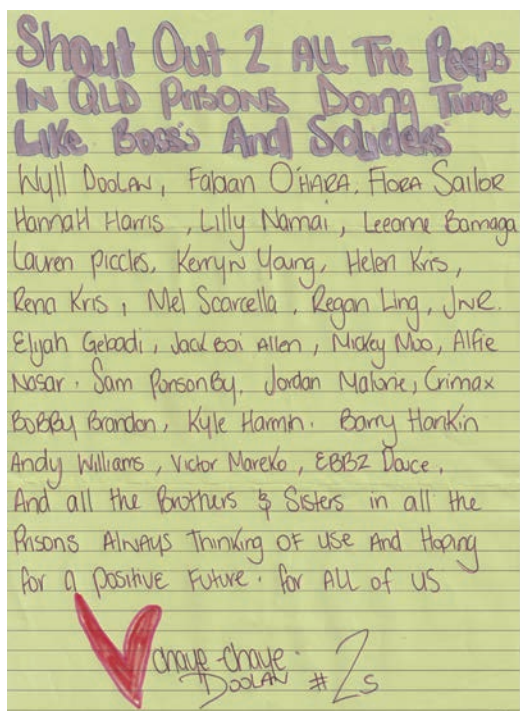 Shout Out 2 All The Peeps
In QLD Prisons Doing Time
Like Boss's And Soliders
Wyll Doolan, Fabian O'Hara, Flora Sailor
Hannah Harris, Lilly Namai, Leeanne Bamaga
Lauren Piccles, Kerryn Young, Helen Kris,
Rena Kris, Mel Scarcella, Regan Ling, JNR.
Elijah Gebadi, Jack Boi Allen, Mickey Moo, Alfie
Nosar. Sam Ponsonby, Jordan Malone, Crimax
Bobby Brandon, Kyle Harmin. Barry Hankin
Andy Williams, Victor Mareko, EBBZ Dauce.
And all the Brothers & Sisters in all the
Prisons Always Thinking of use And Hoping
for a positive Future. for ALL of US
Chaye-Chaye.
Doolan #2s